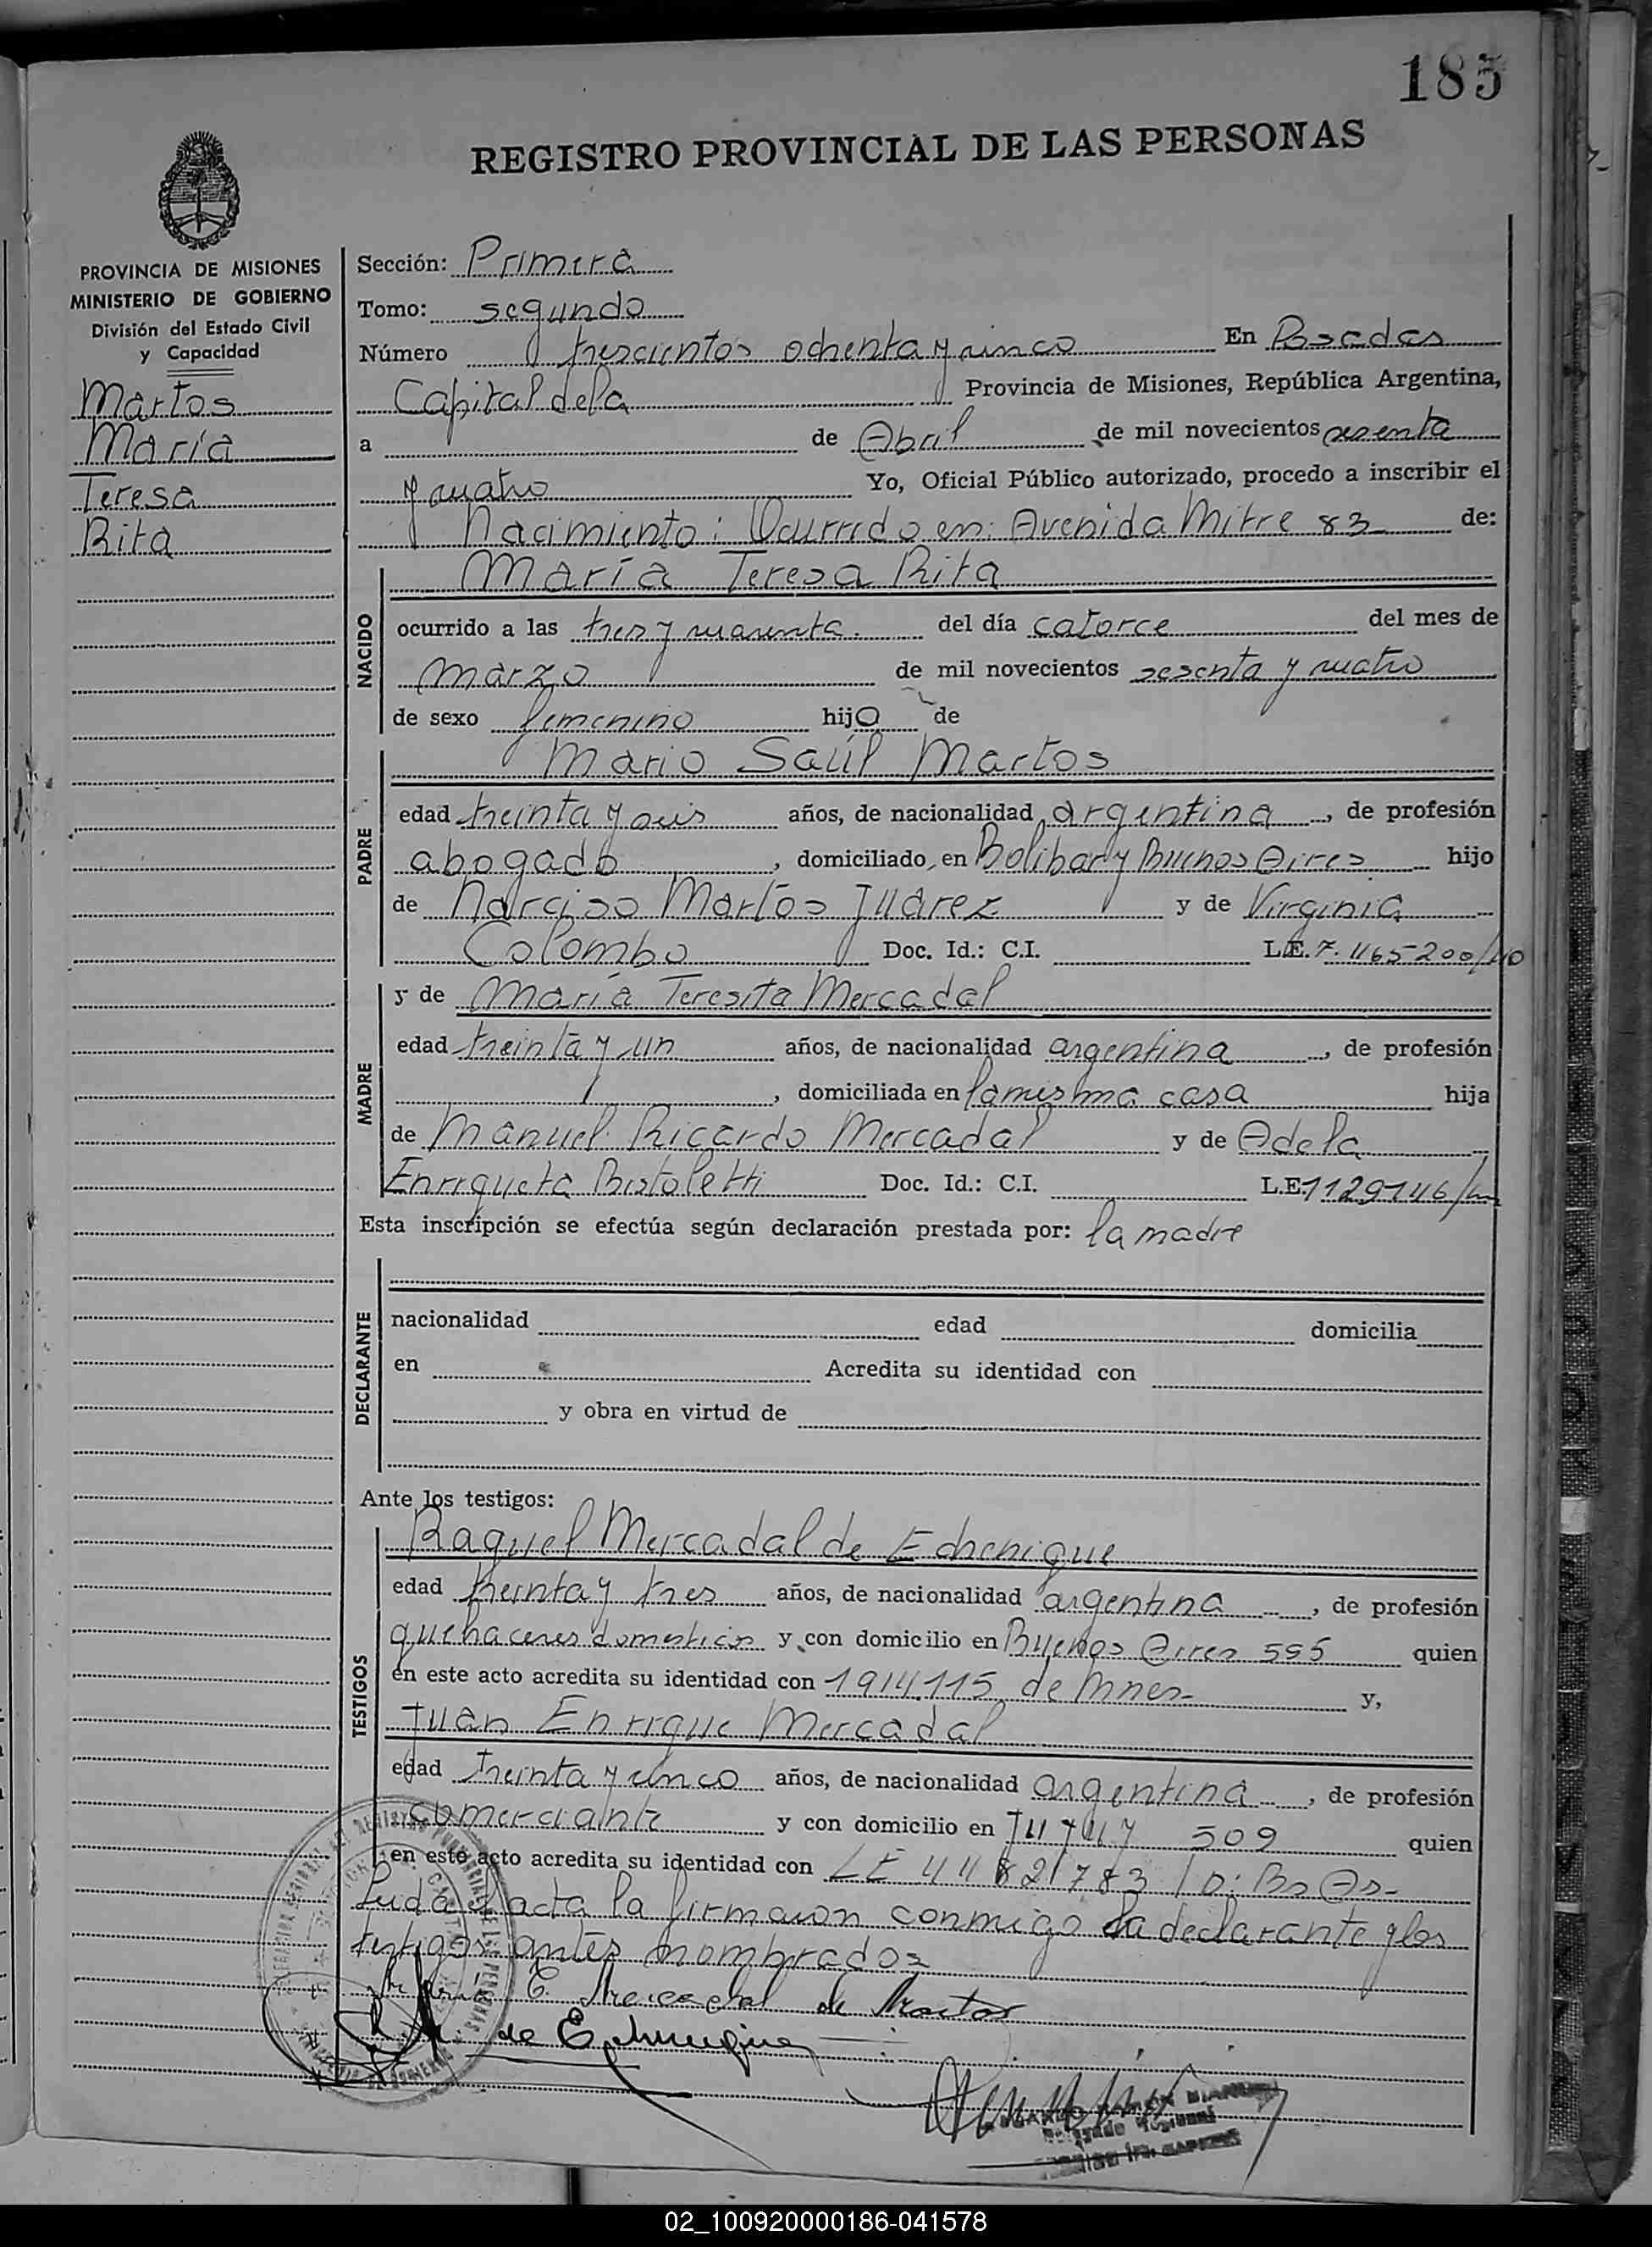 185
REGISTRO PROVINCIAL DE LAS PERSONAS
PROVINCIA DE MISIONES
MINISTERIO DE GOBIERNO
División del Estado Civil
y Capacidad
Martos
María
Teresa
Rita
Sección: Primera
Tomo: segundo
Número trescientos ochenta y cinco En Posadas
Capital de la Provincia de Misiones, República Argentina,
a de Abril de mil novecientos sesenta
y cuatro Yo, Oficial Público autorizado, procedo a inscribir el
Nacimiento: Ocurrido en: Avenida Mitre 83 de:
NACIDO
María Teresa Rita
ocurrido a las tres y cuarenta. del día catorce del mes de
marzo de mil novecientos sesenta y cuatro
de sexo femenino hija de
PADRE
Mario Saúl Martos
edad treinta y seis años, de nacionalidad argentina, de profesión
abogado, domiciliado en Bolibar y Buenos Aires hijo
de Narciso Martos Juárez y de Virginia
Colombo Doc. Id.: C.I. L.E. 7.465200/40
MADRE
y de María Teresita Mercadal
edad treinta y un años, de nacionalidad argentina, de profesión
, domiciliada en la misma casa hija
de Manuel Ricardo Mercadal y de Adela
Enriqueta Bistoletti Doc. Id.: C.I. L.E. 1129146/
Esta inscripción se efectúa según declaración prestada por: la madre
DECLARANTE
nacionalidad edad domicilia
en Acredita su identidad con
y obra en virtud de
Ante los testigos:
TESTIGOS
Raquel Mercadal de Echenique
edad treinta y tres años, de nacionalidad argentina, de profesión
quehaceres domesticos y con domicilio en Buenos Aires 595 quien
en este acto acredita su identidad con 1914.115 de Mnes- y,
Juan Enrique Mercadal
edad treinta y cinco años, de nacionalidad argentina, de profesión
comerciante y con domicilio en Jujuy 509 quien
en este acto acredita su identidad con LE 4482783 D: Bs As-
Leída el acta la firmaron conmigo la declarante y los
testigos antes nombrados
María T. Mercadal de Martos
de Echenique
02_100920000186-041578